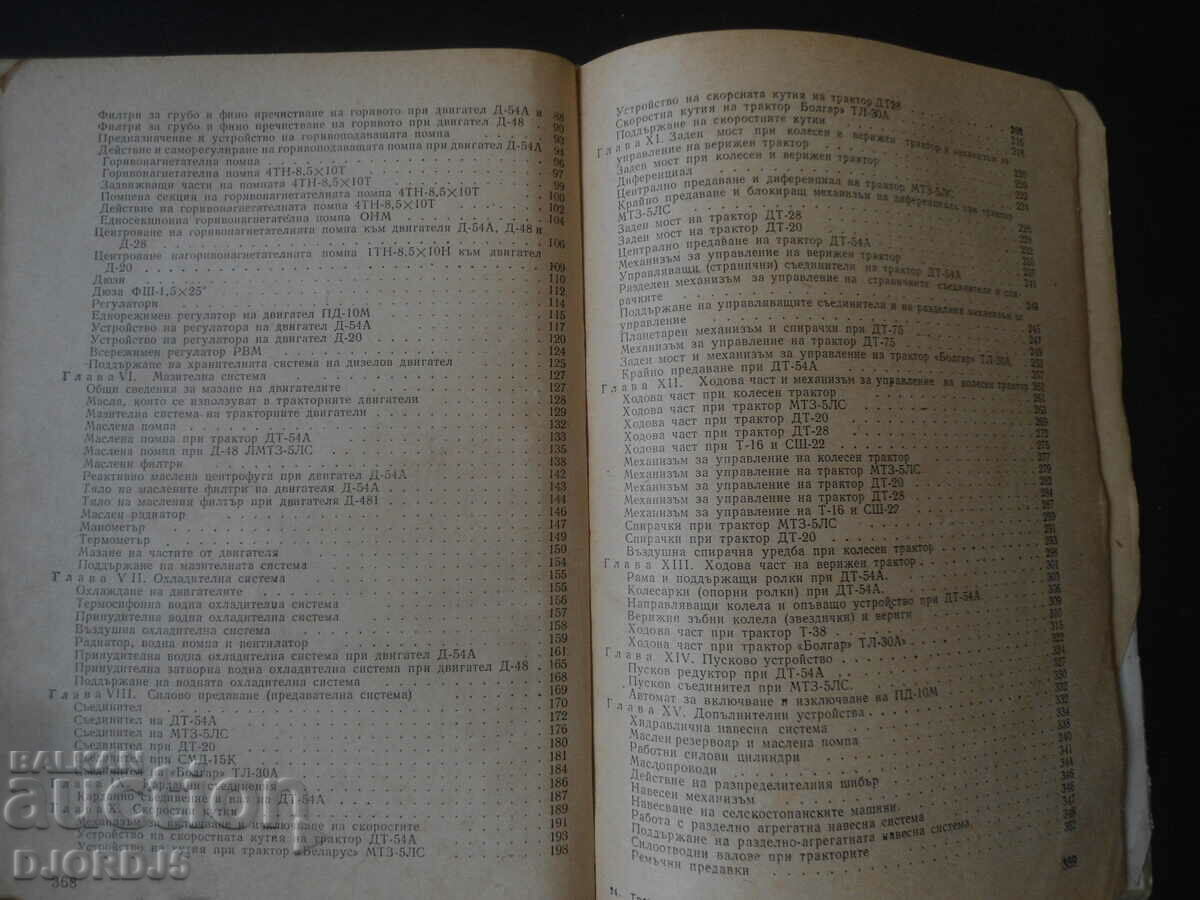 Филтри за грубо и фино пречистване на горивото при двигател Д-54А и 88
Филтри за грубо и фино пречистване на горивото при двигател Д-48 . 90
Предназначение и устройство на горивоподаващата помпа 93
Действие и саморегулиране на горивоподаващата помпа при двигател Д-54А 94
Горивонагнетателна помпа 96
Горивонагнетателна помпа 4ТН-8,5×10Т 97
Задвижващи части на помпата 4ТН-8,5×10Т 99
Помпена секция на горивонагнетателната помпа 4ТН-8,5×10Т 100
Действие на горивонагнетателната помпа 4ТН-8,5×10Т 102
Едносекционна горивонагнетателна помпа ОНМ 104
Центроване на горивонагнетателната помпа към двигателя Д-54А, Д-48 и
Д-28 106
Центроване нагоривонагнетателната помпа 1ТН-8,5×10Н към двигател
Д-20 109
Дюзи 110
Дюза ФШ-1,5×25° 112
Регулатори 114
Еднорежимен регулатор на двигател ПД-10М 115
Устройство на регулатора на двигател Д-54А 117
Устройство на регулатора на двигател Д-20 120
Всережимен регулатор РВМ 124
Поддържане на хранителната система на дизелов двигател 125
Глава VI. Мазителна система 127
Общи сведения за мазане на двигателите 127
Масла, които се използуват в тракторните двигатели 128
Мазителна система на тракторните двигатели 129
Маслена помпа 132
Маслена помпа при трактор ДТ-54А 133
Маслена помпа при Д-48 ЛМТЗ-5ЛС 135
Маслени филтри 138
Реактивно маслена центрофуга при двигател Д-54А 142
Тяло на маслените филтри на двигателя Д-54А 143
Тяло на масления филтър при двигателя Д-48Л 144
Маслен радиатор 146
Манометър 147
Термометър 149
Мазане на частите от двигателя 150
Поддържане на мазителната система 154
Глава VII. Охладителна система 155
Охлаждане на двигателите 155
Термосифонна водна охладителна система 156
Принудителна водна охладителна система 157
Въздушна охладителна система 158
Радиатор, водна помпа и вентилатор 159
Принудителна водна охладителна система при двигател Д-54А 161
Принудителна затворна водна охладителна система при двигател Д-48 . 165
Поддържане на водната охладителна система 168
Глава VIII. Силово предаване (предавателна система) 169
Съединител 170
Съединител на ДТ-54А 172
Съединител на МТЗ-5ЛС 176
Съединител при ДТ-20 180
Съединител при СМД-15К 181
«Болгар» ТЛ-30А 184
Карданни съединения 186
Карданно съединение на ДТ-54А 187
Глава X. Скоростни кутии 189
Механизъм за включване и изключване на скоростите 191
Устройство на скоростната кутия на трактор ДТ-54А 193
Устройство на кутия при трактор «Беларус» МТЗ-5ЛС 198
368
Устройство на скорсната кутия на трактор ДТ28
Скоростна кутия на трактор Болгар» ТЛ-30А
Поддържане на скоростните кутии
Глава XI. Заден мост при колесен и верижен трактор и механизъм за
управление на верижен трактор
Заден мост при колесен и верижен трактор
Диференциал
Централно предаване и диференциал на трактор МТЗ-5ЛС
Крайно предаване и блокиращ механизъм на диференциала при трактор
МТЗ-5ЛС
Заден мост на трактор ДТ-28
Заден мост на трактор ДТ-20
Централно предаване на трактор ДТ-54А
Механизъм за управление на верижен трактор
Управляващи (странични) съединители на трактор ДТ-54А
Разделен механизъм за управление на страничните съединители и спи-
рачките
Поддържане на управляващите съединители и на разделния механизъм за
управление
Планетарен механизъм и спирачки при ДТ-75 245
Механизъм за управление на трактор ДТ-75
Заден мост и механизъм за управление на трактор «Болгар» ТЛ-30А
Крайно предаване при ДТ-54А 257
Глава XII. Ходова част и механизъм за управление на колесен трактор
Ходова част при колесен трактор
Ходова част при трактор МТЗ-5ЛС
Ходова част при трактор ДТ-20
Ходова част при трактор ДТ-28
Ходова част при Т-16 и СШ-22
Механизъм за управление на колесен трактор 277
Механизъм за управление на трактор МТЗ-5ЛС 279
Механизъм за управление на трактор ДТ-20 282
Механизъм за управление на трактор ДТ-28 284
Механизъм за управление на Т-16 и СШ-22
Спирачки при трактор МТЗ-5ЛС
Спирачки при трактор ДТ-20
Въздушна спирачна уредба при колесен трактор
Глава XIII. Ходова част на верижен трактор
Рама и поддържащи ролки при ДТ-54А.
Колесарки (опорни ролки) при ДТ-54А.
Направляващи колела и опъващо устройство при ДТ-54А
Верижни зъбни колела (звездички) и вериги
Ходова част при трактор Т-38
Ходова част при трактор «Болгар» ТЛ-30А»
Глава XIV. Пусково устройство
Пусков редуктор при ДТ-54А
Пусков съединител при МТЗ-5ЛС.
Автомат за включване и изключване на ПД-10М
Глава XV. Допълнителни устройства.
Хидравлична навесна система
Маслен резервоар и маслена помпа
Работни силови цилиндри
Маслопроводи
Действие на разпределителния шибър
Навесен механизъм
Навесване на селскостопанските машини
Работа с разделно агрегатна навесна система
Поддържане на разделно-агрегатната навесна система
Силоотводни валове при тракторите
Ремъчни предавки
24.
BALKAN
auction
DJORDJ5